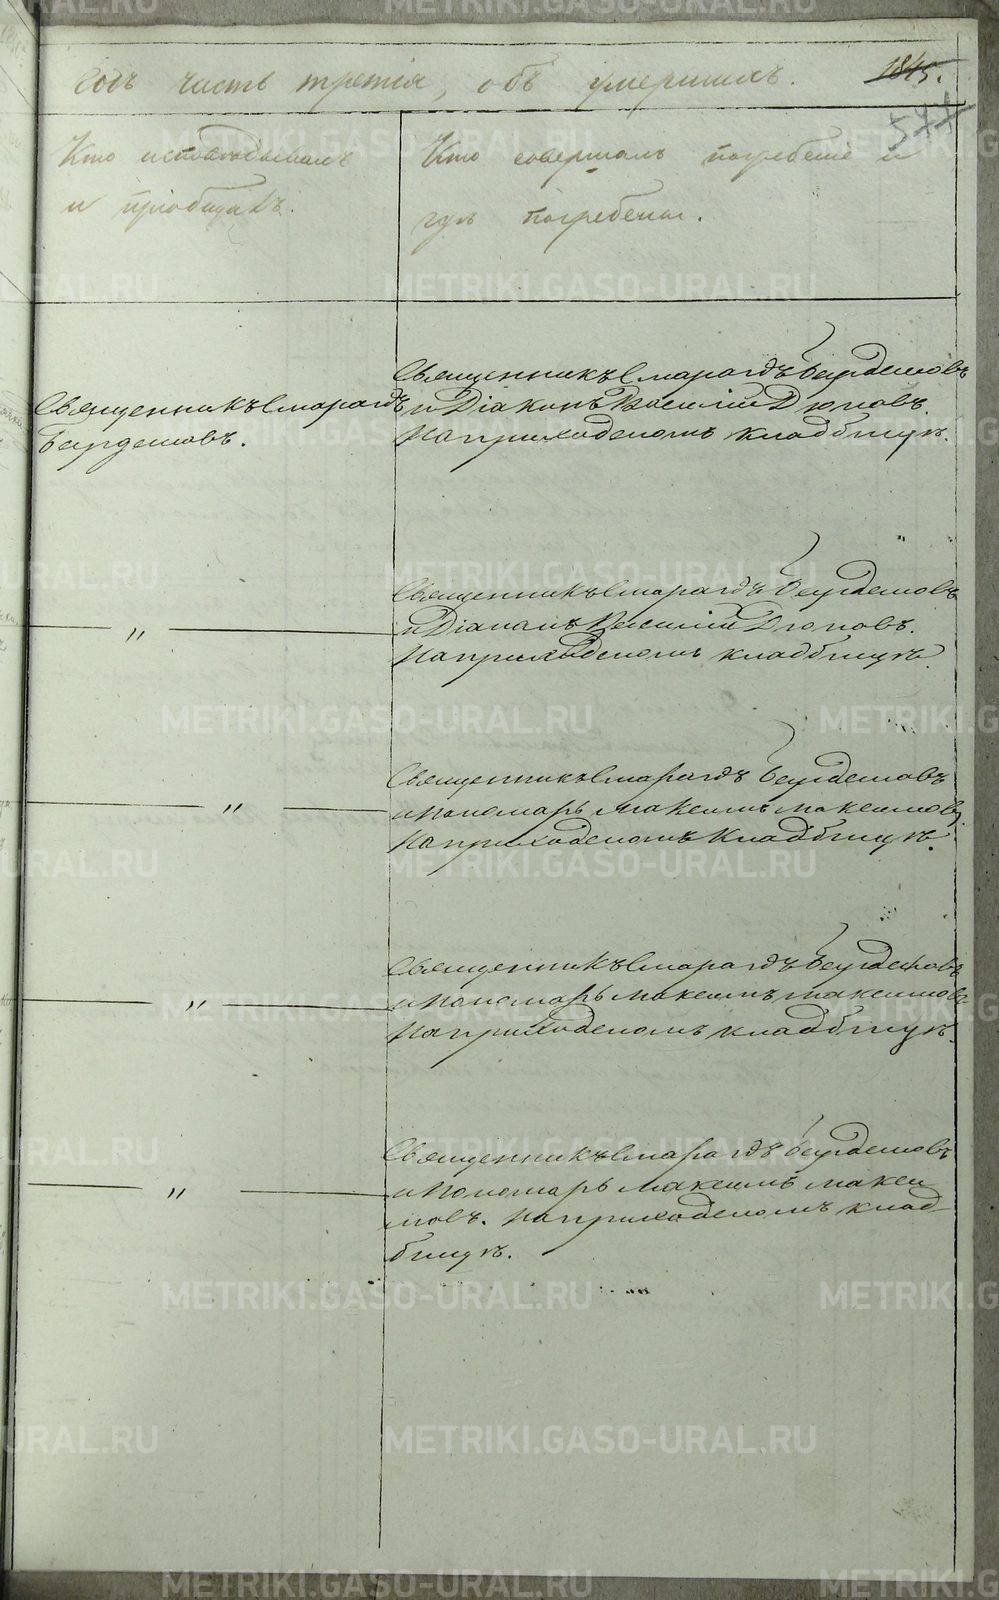 годъ часть третія, объ умершихъ. 1845.
577
Кто исповѣдывалъ
и пріобщалъ.
Кто совершалъ погребеніе и
гдѣ погребены.
Священникъ Смарагдъ
Бурдешовъ.
Священникъ Смарагдъ Бурдешовъ
и Діаконъ Василій Дюповъ.
На приходскомъ кладбищѣ.
"
Священникъ Смарагдъ Бурдешовъ
и Діаконъ Василій Дюповъ.
На приходскомъ кладбищѣ.
"
Священникъ Смарагдъ Бурдешовъ
и Пономарь Максимъ Максимовъ
На приходскомъ кладбищѣ.
"
Священникъ Смарагдъ Бурдешовъ
и Пономарь Максимъ Максимовъ
На приходскомъ кладбищѣ.
"
Священникъ Смарагдъ Бурдешовъ
и Пономарь Максимъ Макси
мовъ. На приходскомъ клад
бищѣ.
METRIKI.GASO-URAL.RU